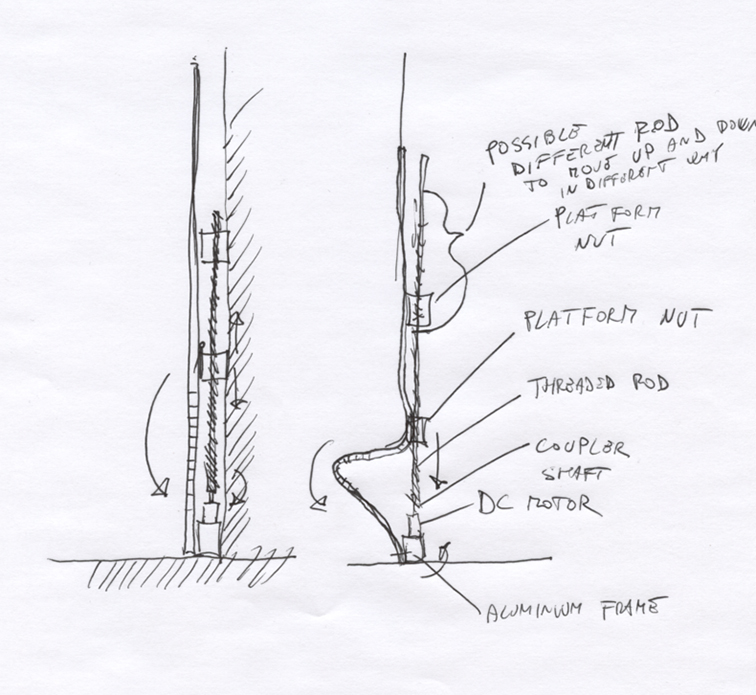 POSSIBLE
DIFFERENT ROD
TO MOVE UP AND DOWN
IN DIFFERENT WAY
PLATFORM
NUT
PLATFORM NUT
THREADED ROD
COUPLER
SHAFT
DC MOTOR
ALUMINIUM FRAME